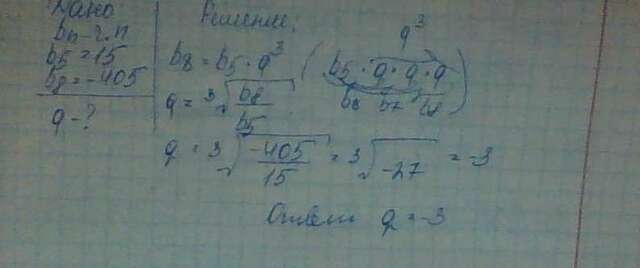 Дано
bn - г.п
b5 = 15
b8 = -405
q - ?
Решение:
b8 = b5 · q³ (b5 · q · q · q)
q³
b6 b7 b8
q = ³√(b8/b5)
q = ³√(-405/15) = ³√-27 = -3
Ответ q = -3